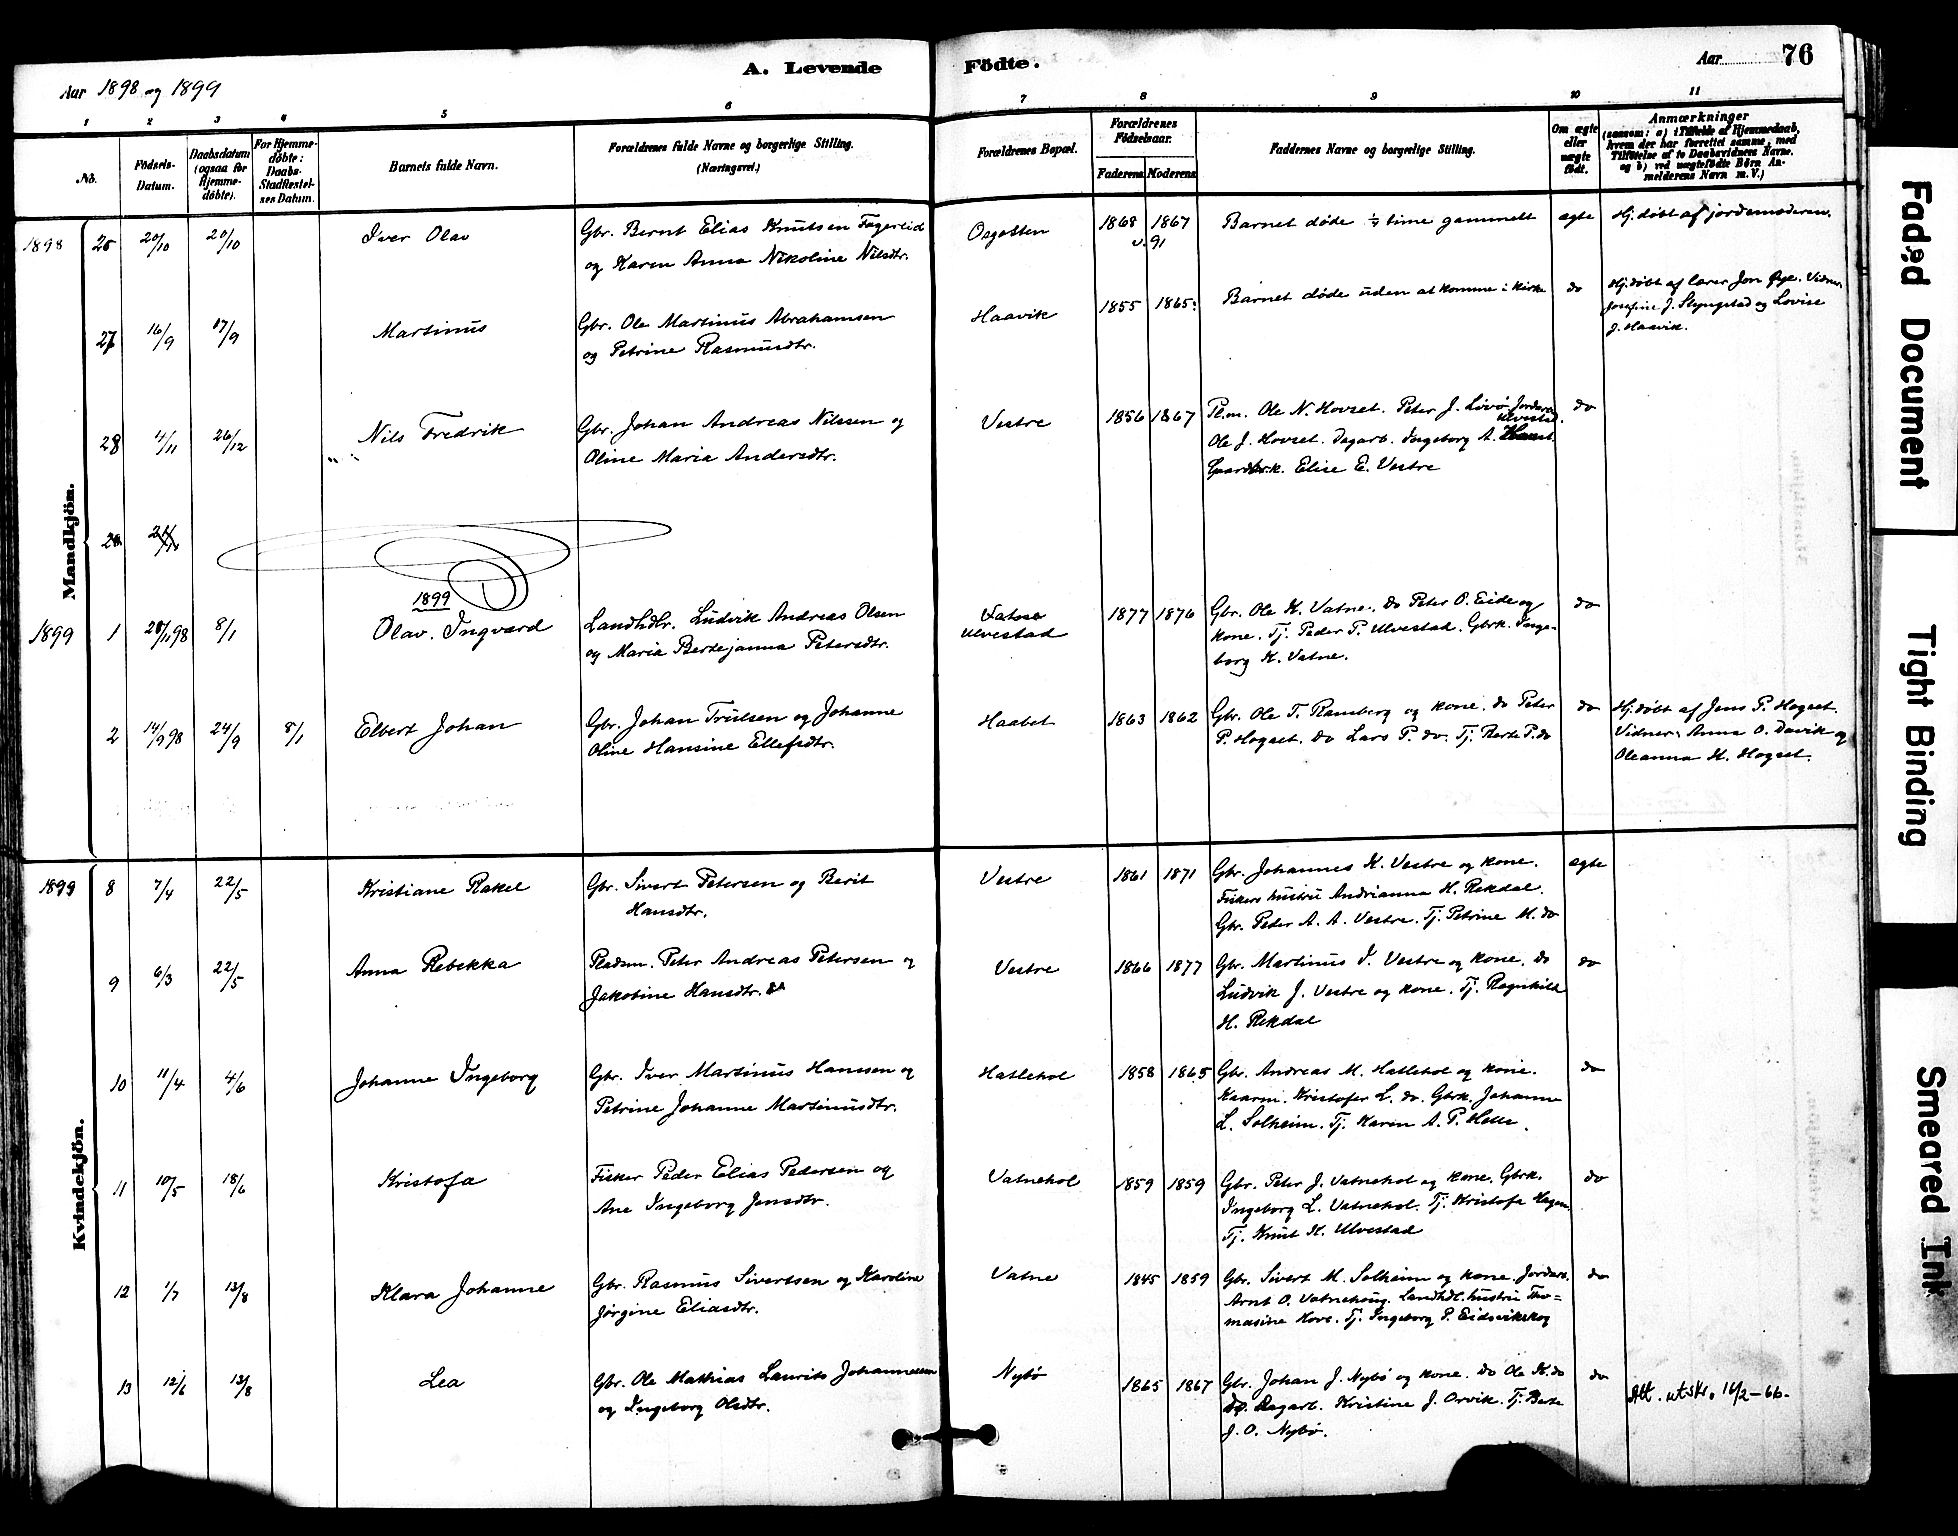 Aar 1898 og 1899
A. Levende
Födte.
Aar 76
1 2 3 4 5 6 7 8 9 10 11
No.
Födsels-Datum.
Daabsdatum (ogsaa for Hjemmedöbte).
For Hjemmedöbte: Daabs-Stadfæstelses Datum.
Barnets fulde Navn.
Forældrenes fulde Navne og borgerlige Stilling. (Næringsvei.)
Forældrenes Bopæl.
Forældrenes Födselsaar.
Faderens Moderens
Faddernes Navne og borgerlige Stilling.
Om ægte eller uægte födt.
Anmærkninger
(saasom: a) i Tilfælde af Hjemmedaab, hvem der har forrettet samme, med Tilföielse af to Daabsvidners Navne, og b) ved uægtefödte Börn Anmelderens Navn m. V.)
Mandkjön.
1898 20/10 20/10 Iver Olav Gbr. Bernt Elias Knutsen Fagerlid Osgotten 1868 1867 Barnet døde 1/2 time gammelt ægte Hj.døbt af jordemoderen.
og Karen Anna Nikoline Nilsdtr.
27 16/9 17/9 Martinus Gbr. Ole Martinus Abrahamsen Haavik 1855 1865 Barnet døde uden at komme i kirke do Hj.døbt af lærer Jon Øye. Vidner
og Petrine Rasmusdtr. Josefine J. og Lovise
J. Haavik.
28 4/11 26/12 Nils Fredrik Gbr. Johan Andreas Nilssen og Vestre 1856 1867 Pl.m. Ole N. Hovset. Peter J. do
Oline Maria Andersdtr. Ole J. Hovset. Dagarb. Ingeborg A.
Gaardbr.k. Elise E. Vestre
1899
1899 1 98 8/1 Olav. Ingvard Landhdlr. Ludvik Andreas Olsen Ulvestad 1877 1876 Gbr. Ole K. Vatne. do Peter O. Eide og do
og Maria Bertejanna Petersdtr. kone. Tj. Peder P. Ulvestad. Gbrk. Inge-
borg K. Vatne.
2 14/9 98 24/9 8/1 Elbert Johan Gbr. Johan Trulsen og Johanne Haabet 1863 1862 Gbr. Ole T. Ramberg og kone. do Peter do Hj.døbt af Jens P. Hogset.
Oline Hansine Ellefsdtr. P. Hogset. do Lars P. do. Tj. Berte P. do Vidner: Anna O. Davik og
Oleanna H. Hogset.
Kvindekjön.
1899 8 7/4 22/5 Kristiane Rakel Gbr. Sivert Petersen og Berit Vestre 1861 1871 Gbr. Johannes K. Vestre og kone. ægte
Hansdtr. Fiskers hustru Andrianna H. Rekdal.
Gbr. Peter A. A. Vestre. Tj. Petrine M. do
9 6/3 22/5 Anna Rebekka Pladsm. Peter Andreas Petersen og Vestre 1866 1877 Gbr. Martinus I. Vestre og kone. do do
Jakobine Hansdtr. Ludvik J. Vestre og kone. Tj. Ragnhild
H. Rekdal
10 11/4 4/6 Johanne Ingeborg Gbr. Iver Martinus Hanssen og Hatlehol 1858 1865 Gbr. Andreas M. Hatlehol og kone. do
Petrine Johanne Martinusdtr. Kaarm. Kristofer L. do. Gbrk. Johanne
L. Solheim. Tj. Karen A. P. Helle.
11 10/5 18/6 Kristofa Fisker Peder Elias Pedersen og Vatnehol 1859 1859 Gbr. Peter J. Vatnehol og kone. Gbrk. do
Ane Ingeborg Jensdtr. Ingeborg L. Vatnehol. Tj. Kristofa Hagen
Tj. Knut K. Ulvestad
12 1/7 13/8 Klara Johanne Gbr. Rasmus Sivertsen og Karoline Vatne 1845 1859 Gbr. Sivert M. Solheim og kone. Jordarb. do
Jørgine Eliasdtr. Arnt O. Vatnehaug. Landhdl. hustru Tho-
masine Hove. Tj. Ingeborg P. Eidsvikskog
13 12/6 13/8 Lea Gbr. Ole Mathias Laurits Johannessen Nybø 1865 1867 Gbr. Johan J. Nybø og kone. do Ole K. do do Att. utskr. 16/2-66.
og Ingeborg Olsdtr. Dagarb. Kristine J. Orvik. Tj. Berte
J. O. Nybø.
Faded Document
Tight Binding
Smeared Ink